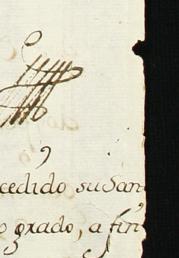 cedido su San
o grado, a fin